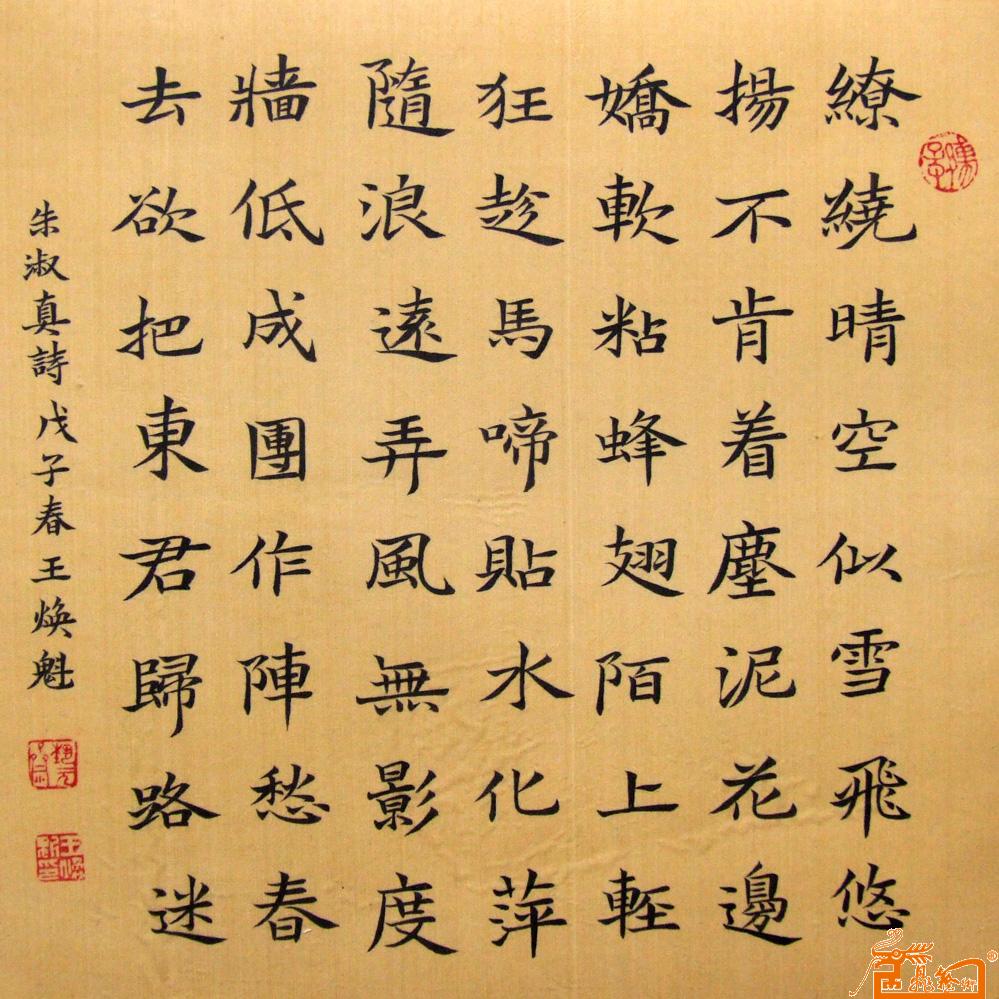 繚繞晴空似雪飛悠
揚不肯着塵泥花邊
嬌軟粘蜂翅陌上輕
狂趁馬啼貼水化萍
隨浪遠弄風無影度
牆低成團作陣愁春
去欲把東君歸路迷
朱淑真詩戊子春王煥魁